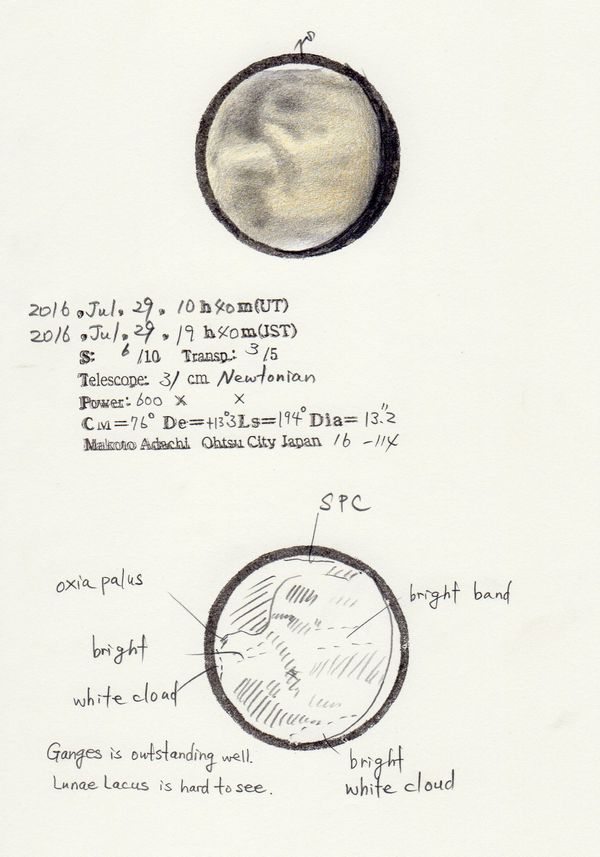 2016, Jul, 29, 10 h 40 m(UT)
2016, Jul, 29, 19 h 40 m(JST)
S: 6 /10 Transp.: 3 /5
Telescope: 31 cm Newtonian
Power: 600 × ×
CM=76° De=+13°.3 Ls=194° Dia= 13".2
Makoto Adachi Ohtsu City Japan 16 -114
SPC
oxia palus
bright band
bright
white cload
Ganges is outstanding well.
Lunae Lacus is hard to see.
bright
white cloud